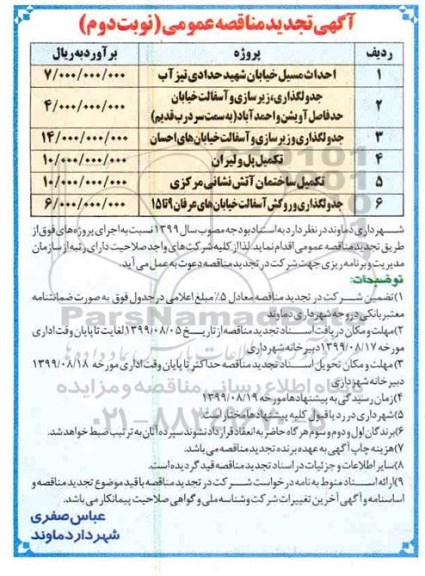 آگهی تجدید مناقصه عمومی (نوبت دوم)
ردیف پروژه برآورد به ریال
۱ احداث مسیل خیابان شهید حدادی تیزآب ۷/۰۰۰/۰۰۰/۰۰۰
۲ جدولگذاری، زیرسازی و آسفالت خیابان
حدفاصل آویشن و احمدآباد (به سمت سردرب قدیم) ۴/۰۰۰/۰۰۰/۰۰۰
۳ جدولگذاری و زیرسازی و آسفالت خیابان‌های احسان ۱۴/۰۰۰/۰۰۰/۰۰۰
۴ تکمیل پل ولیران ۱۰/۰۰۰/۰۰۰/۰۰۰
۵ تکمیل ساختمان آتش نشانی مرکزی ۱۰/۰۰۰/۰۰۰/۰۰۰
۶ جدولگذاری و روکش آسفالت خیابان‌های عرفان ۹ تا ۱۵ ۶/۰۰۰/۰۰۰/۰۰۰
شهرداری دماوند در نظر دارد به استناد بودجه مصوب سال ۱۳۹۹ نسبت به اجرای پروژه‌های فوق از
طریق تجدید مناقصه عمومی اقدام نماید. لذا از کلیه شرکت های واجد صلاحیت دارای رتبه از سازمان
مدیریت و برنامه ریزی جهت شرکت در تجدید مناقصه دعوت به عمل می آید.
توضیحات:
۱) تضمین شرکت در تجدید مناقصه معادل ۵٪ مبلغ اعلامی در جدول فوق به صورت ضمانتنامه
معتبر بانکی در وجه شهرداری دماوند
۲) مهلت و مکان دریافت اسناد تجدید مناقصه از تاریخ ۱۳۹۹/۰۸/۰۵ لغایت تا پایان وقت اداری
مورخه ۱۳۹۹/۰۸/۱۷ دبیرخانه شهرداری
۳) مهلت و مکان تحویل اسناد تجدید مناقصه حداکثر تا پایان وقت اداری مورخه ۱۳۹۹/۰۸/۱۸
دبیرخانه شهرداری
۴) زمان رسیدگی به پیشنهادها مورخه ۱۳۹۹/۰۸/۱۹
۵) شهرداری در رد یا قبول کلیه پیشنهادها مختار است.
۶) برندگان اول و دوم و سوم هرگاه حاضر به انعقاد قرارداد نشوند سپرده آنان به ترتیب ضبط خواهد شد.
۷) هزینه چاپ آگهی به عهده برنده تجدید مناقصه می باشد.
۸) سایر اطلاعات و جزئیات در اسناد تجدید مناقصه قید گردیده است.
۹) ارائه اسناد منوط به نامه درخواست شرکت در تجدید مناقصه با قید موضوع تجدید مناقصه و
اساسنامه و آگهی آخرین تغییرات شرکت و شناسه ملی و گواهی صلاحیت پیمانکار می باشد.
عباس صفری
شهردار دماوند
ParsNamadData
پایگاه اطلاع رسانی مناقصه و مزایده